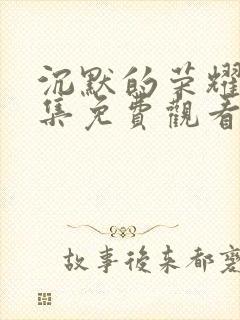 沉默的荣耀
集免費觀看
故事後来都